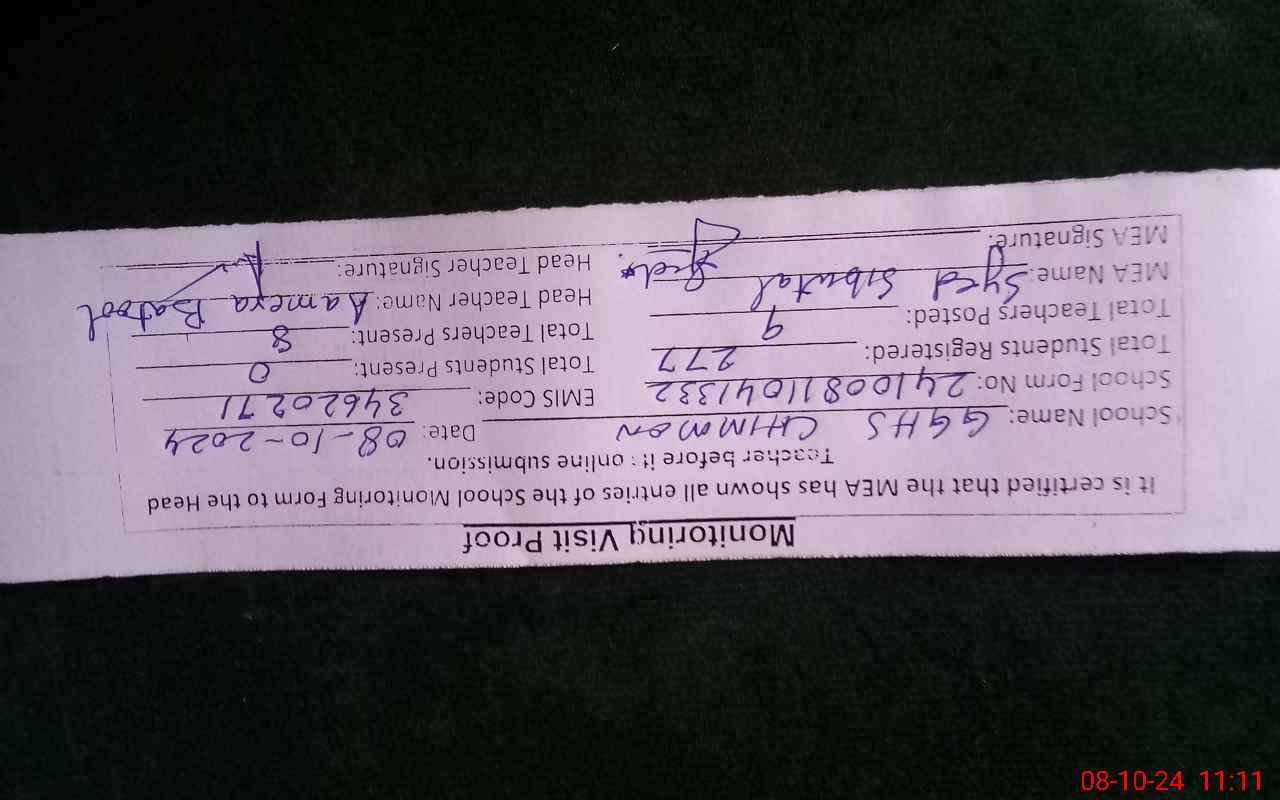 Monitoring Visit Proof
It is certified that the MEA has shown all entries of the School Monitoring Form to the Head
Teacher before it : online submission.
School Name: GGHS CHIMMON Date: 08-10-2024
School Form No: 24100811041332 EMIS Code: 34620271
Total Students Registered: 277 Total Students Present: 0
Total Teachers Posted: 9 Total Teachers Present: 8
MEA Name: Syed Sibutal Head Teacher Name: Aamera Batool
MEA Signature: Head Teacher Signature:
08-10-24 11:11